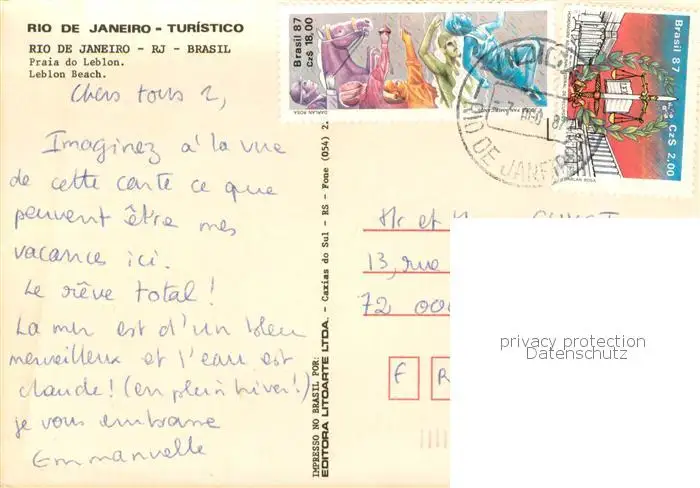 RIO DE JANEIRO - TURÍSTICO
RIO DE JANEIRO - RJ - BRASIL
Praia do Leblon.
Leblon Beach.
Chers tous 2,
Imaginez à la vue
de cette carte ce que
peuvent être mes
vacances ici.
Le rêve total !
La mer est d'un bleu
merveilleux et l'eau est
chaude ! (en plein hiver !)
je vous embrasse
Emmanuelle
IMPRESSO NO BRASIL POR:
EDITORA LITOARTE LTDA. - Caxias do Sul - RS - Fone (054) 2
Brasil 87
Cz$ 18,00
DARLAN ROSA
Brasil 87
Cz$ 2,00
DARLAN ROSA
87
RIO DE JANEIRO
Mr et
13, rue
72 000
F R
privacy protection
Datenschutz